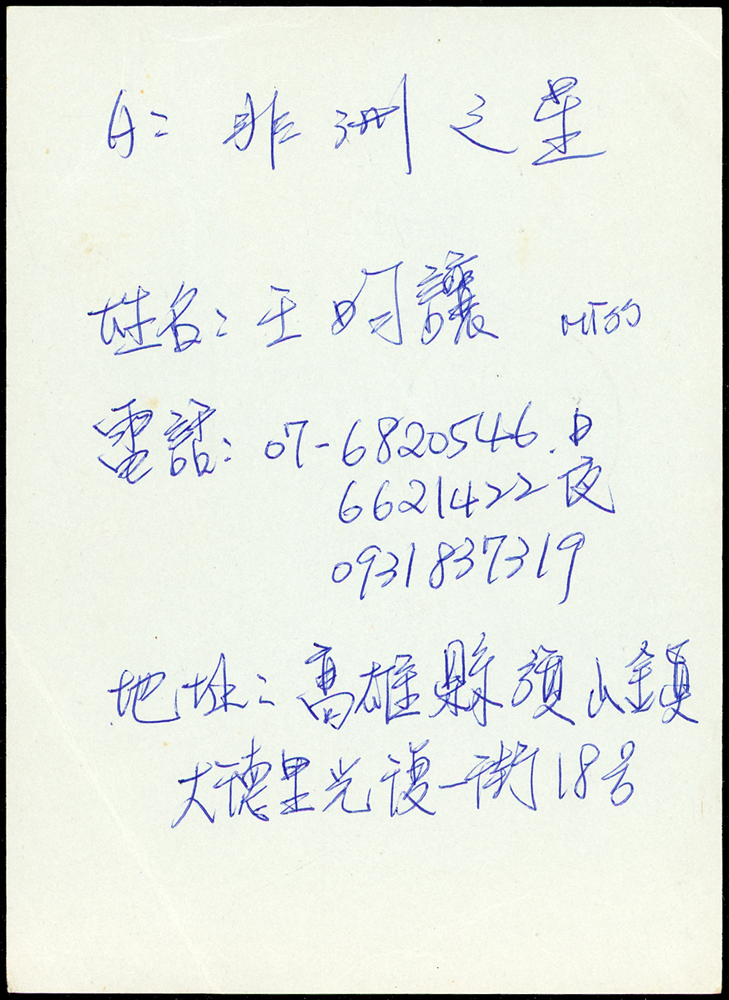 A: 非洲之星
姓名:王明讓 MISS
電話:07-6820546.日
6621422夜
0931837319
地址:高雄縣旗山鎮
大德里光復一街18号